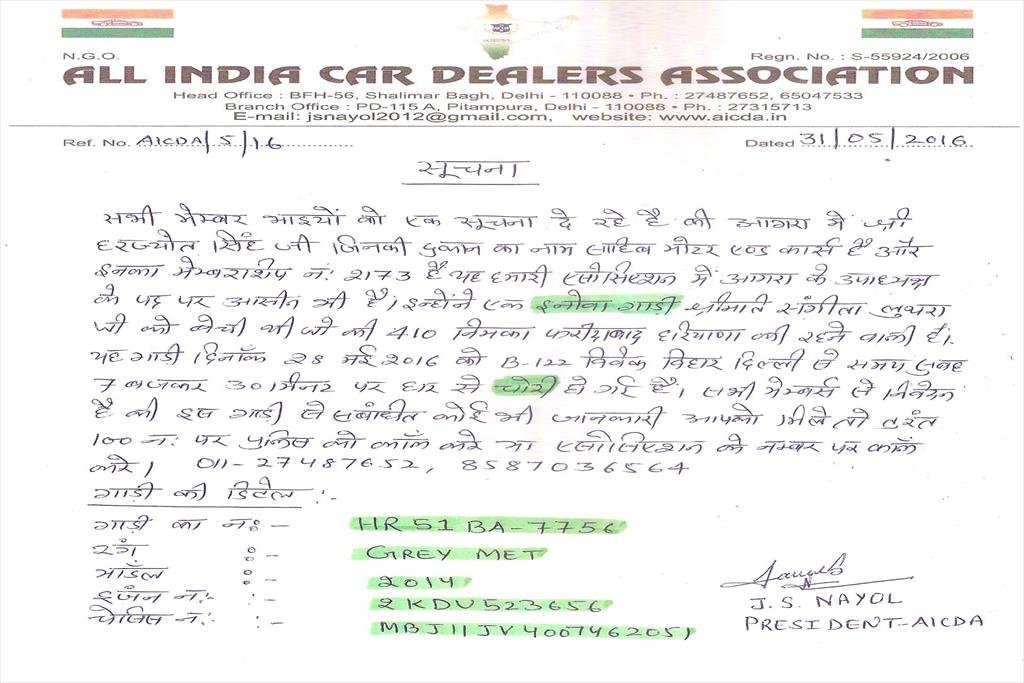 N.G.O.
Regn. No. : S-55924/2006
ALL INDIA CAR DEALERS ASSOCIATION
Head Office : BFH-56, Shalimar Bagh, Delhi - 110088 • Ph. : 27487652, 65047533
Branch Office : PD-115 A, Pitampura, Delhi - 110088 • Ph. : 27315713
E-mail: jsnayol2012@gmail.com, website: www.aicda.in
Ref. No. AICDA/5/16
Dated 31/05/2016
सूचना
सभी मेम्बर भाइयों को एक सूचना दे रहे है की आगरा मे श्री
हरज्योत सिंह जी जिनकी दुकान का नाम साहिब मोटर एण्ड कार्स है और
इनका मेम्बरशिप नं: 2173 है यह हमारी एसोसिएशन में आगरा के उपाध्यक्ष
के पद पर आसीन भी है। इन्होंने एक इनोवा गाड़ी श्रीमति संगीता लुथरा
जी को बेची थी जो की 410 फरीदाबाद हरियाणा की रहने वाली है।
यह गाड़ी दिनाँक 28 मई 2016 को B-122 विवेक विहार दिल्ली से समय सुबह
7 बजकर 30 मिनट पर घर से चोरी हो गई है। सभी मेम्बर्स से निवेदन
है की इस गाड़ी से संबंधीत कोई भी जानकारी आपको मिले तो तुरंत
100 नं: पर पुलिस को कॉल करे या एसोसिएशन के नम्बर पर कॉल
करे। 011-27487652, 8587036564
गाड़ी की डिटेल :-
गाड़ी का नं: - HR 51 BA-7756
रंग : - GREY MET
मॉडल : - 2014
इंजन नं: : - 2KDU523656
चेसिस नं: : - MBJ11JV4007462051
J.S. NAYOL
PRESIDENT-AICDA